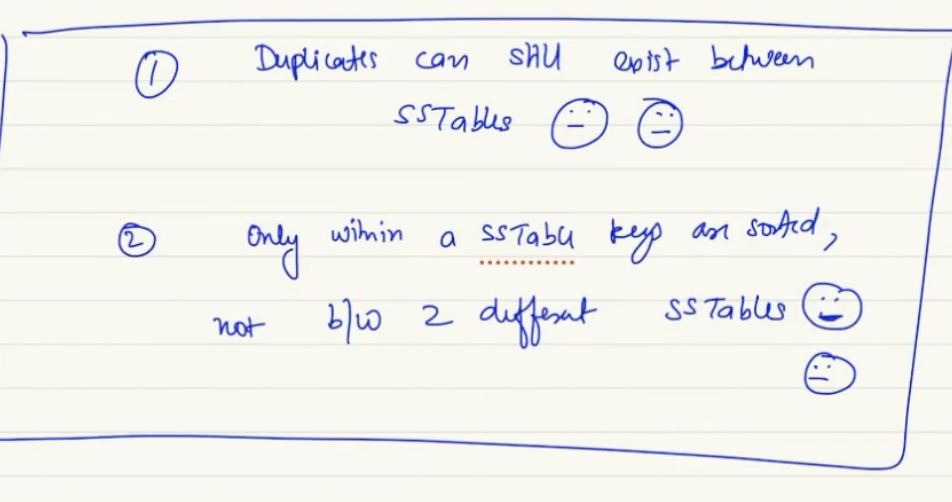 ① Duplicates can still exist between
SSTables
② Only within a SSTable keys are sorted,
not b/w 2 different SSTables